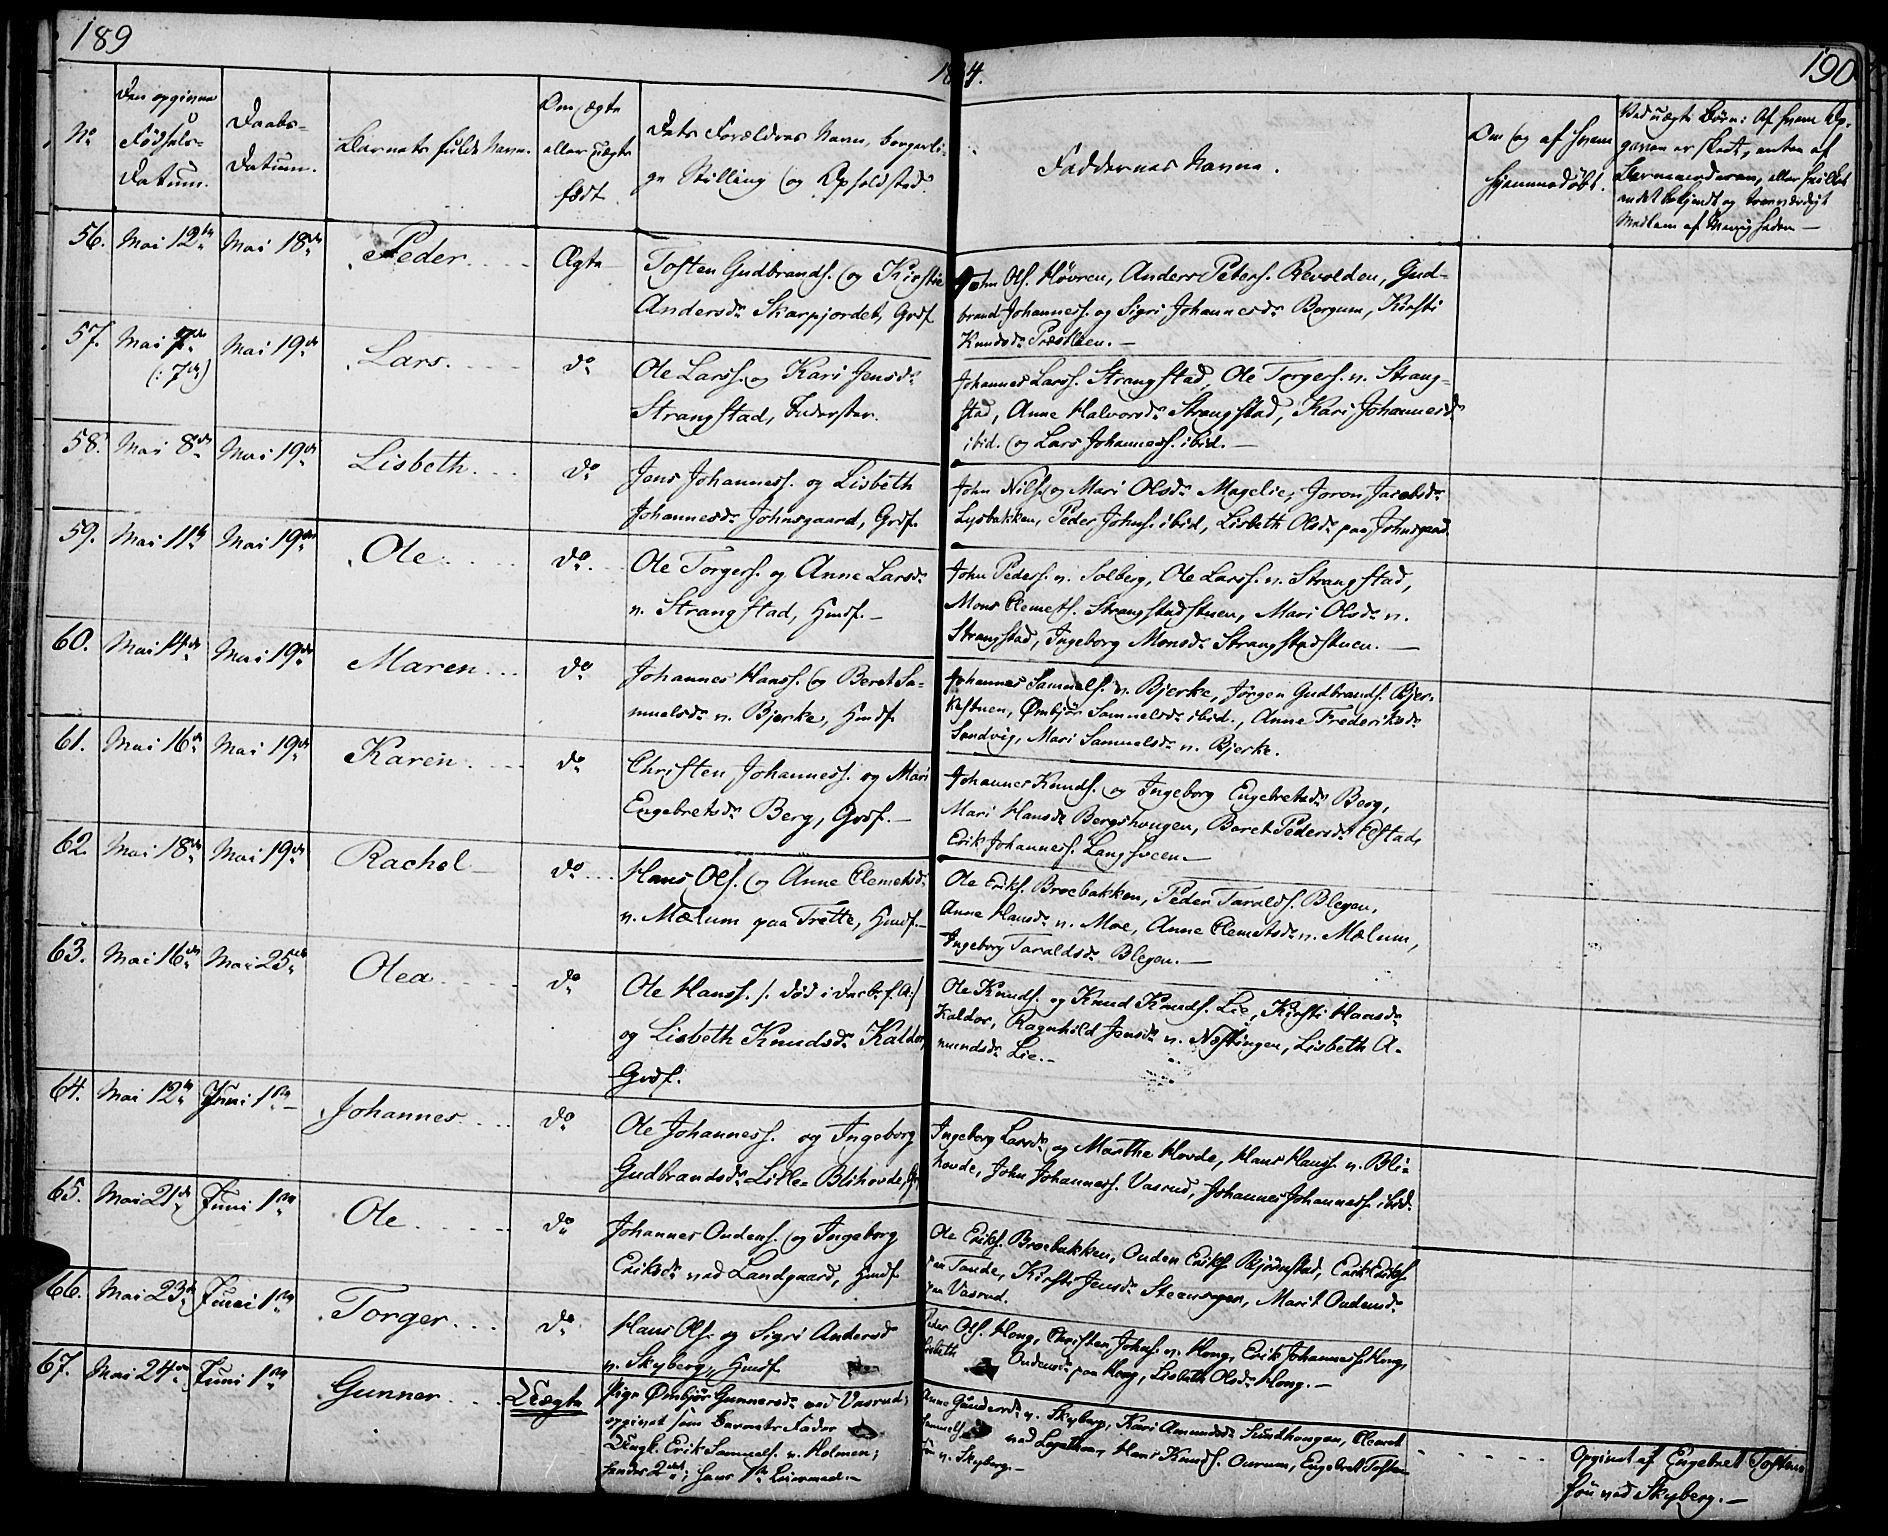 189
18 4.
190
No
Den opgivne Fødsels-Datum.
Daabs-Datum.
Barnets fulde Navn.
Om ægte eller uægte født.
Dets Forældres Navn, borgerli-
ge Stilling og Opholdsted.
Faddernes Navne.
Om og af hvem hjemmedøbt.
Ved uægte Børn: Af hvem Op-
givven er skeet, enten af
Barnemoderen, eller hvilket
andet bekjendt og troværdigt
Medlem af Menigheden —
56. Mai 12te Mai 18de Peder Ægte Tosten Gudbrands. og Kirstie
Andersdr Skarpjordet, Grdf.
John Ols. Høvren, Anders Peders. Revolden, Gud-
brand Johannes. og Sigri Johannesdr Bergum, Kirsti
Knudsdr Præstteen. —
57. Mai 7de Mai 19de Lars do Ole Larss. og Kari Jensdr
(: 7de)
Strangstad, Inderster.
Johannes Larss. Strangstad, Ole Torgers. n. Strang-
stad, Anne Halvorsdr Strangstad, Kari Johannesdr
ibid. og Lars Johanness. ibid. —
58. Mai 8de Mai 19de Lisbeth do Jens Johanness. og Lisbeth
Johannesdr Johnsgaard, Grdf.
John Nils. og Mari Olsdr Magelie, Joron Jacobsdr
Lysbakken, Peder Johns. ibid, Lisbeth Olsdr paa Johnsgaard.
59. Mai 11te Mai 19de Ole do Ole Torgers. og Anne Larsdr
n. Strangstad, Hmdf. —
John Peders. n. Solberg, Ole Larss. n. Strangstad,
Mons Clemets. Strangstadstuen, Mari Olsdr n.
Strangstad, Ingeborg Monsdr Strangstadstuen. —
60. Mai 14de Mai 19de Maren do Johannes Hanss. og Beret Sa-
muelsdr n. Bjerke, Hmdf.
Johannes Samuels. n. Bjerke, Jørgen Gudbrands. Bjer-
kestuen, Ømbjør Samuelsdr ibid., Anne Frederiksdr
Sandvig, Mari Samuelsdr n. Bjerke.
61. Mai 16de Mai 19de Karen do Christen Johanness. og Mari
Engebretsdr Berg, Grdf. —
Johannes Knuds. og Ingeborg Engebretsdr Berg,
Mari Hansdr Bergshougen, Beret Pedersdr Edstad,
Erik Johanness. Langsveen —
62. Mai 18de Mai 19de Rachel do Hans Ols. og Anne Clemetsdr
n. Mælum paa Trette, Hmdf. —
Ole Eriks. Broebakken, Peder Taralds. Blegen,
Anne Hansdr n. Moe, Anne Clemetsdr n. Mælum,
Ingeborg Taraldsdr Blegen. —
63. Mai 16de Mai 25de Olea do Ole Hanss. /: død i Decbr f. A:/
og Lisbeth Knudsdr Kaldor,
Grdf.
Ole Knuds. og Knud Knuds. Lie, Kirsti Hansdr
Kaldor, Ragnhild Jensdr n. Næstingen, Lisbeth A-
mundsdr Lie. —
64. Mai 12te Juni 1ste Johannes do Ole Johanness. og Ingeborg
Gudbrandsdr Lille Blihovde,
Ingeborg Larsdr og Marthe Hovde, Hans Hanss. n. Bli-
hovde, John Johanness. Vasrud, Johannes Johanness. ibid.
65. Mai 21de Juni 1ste Ole do Johannes Oudens. og Ingeborg
Eriksdr ved Landgaard, Hmdf.
Ole Eriks. Broebakken, Ouden Eriks. Bjørnstad, Erik Eriks.
paa Tande, Kirsti Jensdr Steensgen, Marit Oudensdr
paa Vasrud.
66. Mai 23de Juni 1ste Torger do Hans Ols. og Sigri Andersd
n. Skyberg, Hmdf.
Peder Ols. Hong, Christen Johns. n. Hong, Erik Johanness. Hong,
Lisbeth Oudensdr paa Hong, Lisbeth Olsdr Hong. —
67. Mai 24de Juni 1ste Gunner Uægte Pige Ømbjør Gunnersdr ved Vasrud;
opgivet som Barnets Fader
Ungk. Erik Samuels. n. Holmen;
hendes 2det; hans 1ste Leiermaal. —
Anne Gundersdr n. Skyberg, Kari Amundsdr Sundhougen, Clemet
Samuels. ved, Hans Knuds. Ourum, Engebret Tosten-
søn n. Skyberg. —
Opgivet af Engebrett Tosten-
søn ved Skyberg. —